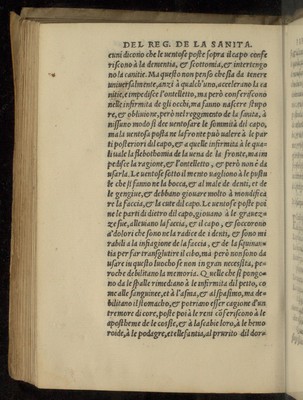 DEL REG. DE LA SANITA.
cuni dicono che le uentose poste sopra il capo confe
riscono à la dementia, & scottomia, & intertengo
no la canitie. Ma questo non penso che sia da tenere
uniuersalmente, anzi à qualch'uno, accelerano la ca
nitie, e impedisce l'ontelletto, ma però conferiscono
nelle infirmita de gli occhi, ma fanno nascere stupo
re, & obliuione, però nel reggimento de la sanita, à
nissuno modo si dee uentosare le sommità del capo,
ma la uentosa posta ne la fronte può ualere à le par
ti posteriori del capo, & a quelle infirmità à le qua
li uale la flebothomia de la uena de la fronte, ma im
pedisce la ragione, & l'ontelletto, & però non è da
usarla. Le uentose sotto il mento uagliono à le pustu
le che si fanno ne la bocca, & al male de denti, et de
le gengiue, & debbano giouare molto à mondifica
re la faccia, & la cute del capo. Le uentose poste poi
ne le parti di dietro del capo, giouano à le grauez-
ze sue, alleuiano la faccia, & il capo, & soccorono
a' dolori che sono ne la radice de i denti, & sono mi
rabili a la infiagione de la faccia, & de la squinan-
tia per far transglutire il cibo, ma però non sono da
usare in questo luocho se non in gran necessita, pe-
roche debilitano la memoria. Quelle che si pongo-
no da le spalle rimediano à le infirmità del petto, co
me alle sanguinee, et à l'asma, & al spasimo, ma de-
bilitano il stomacho, & potriano esser cagione d'un
tremore di core, poste poi à le reni cõferiscono à le
apostheme de le coscie, & à la scabie loro, à le hemo
roide, à le podagre, et elefantia, al prurito del dor-